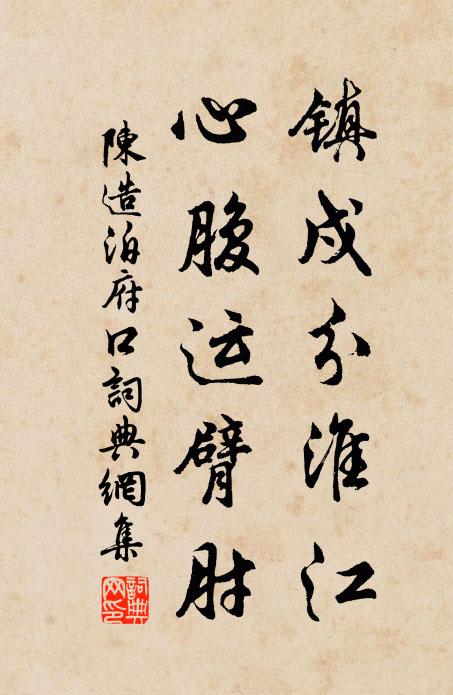 镇戍分淮江
心腹运臂肘
陳造泊府口詞典網集
詞典网印